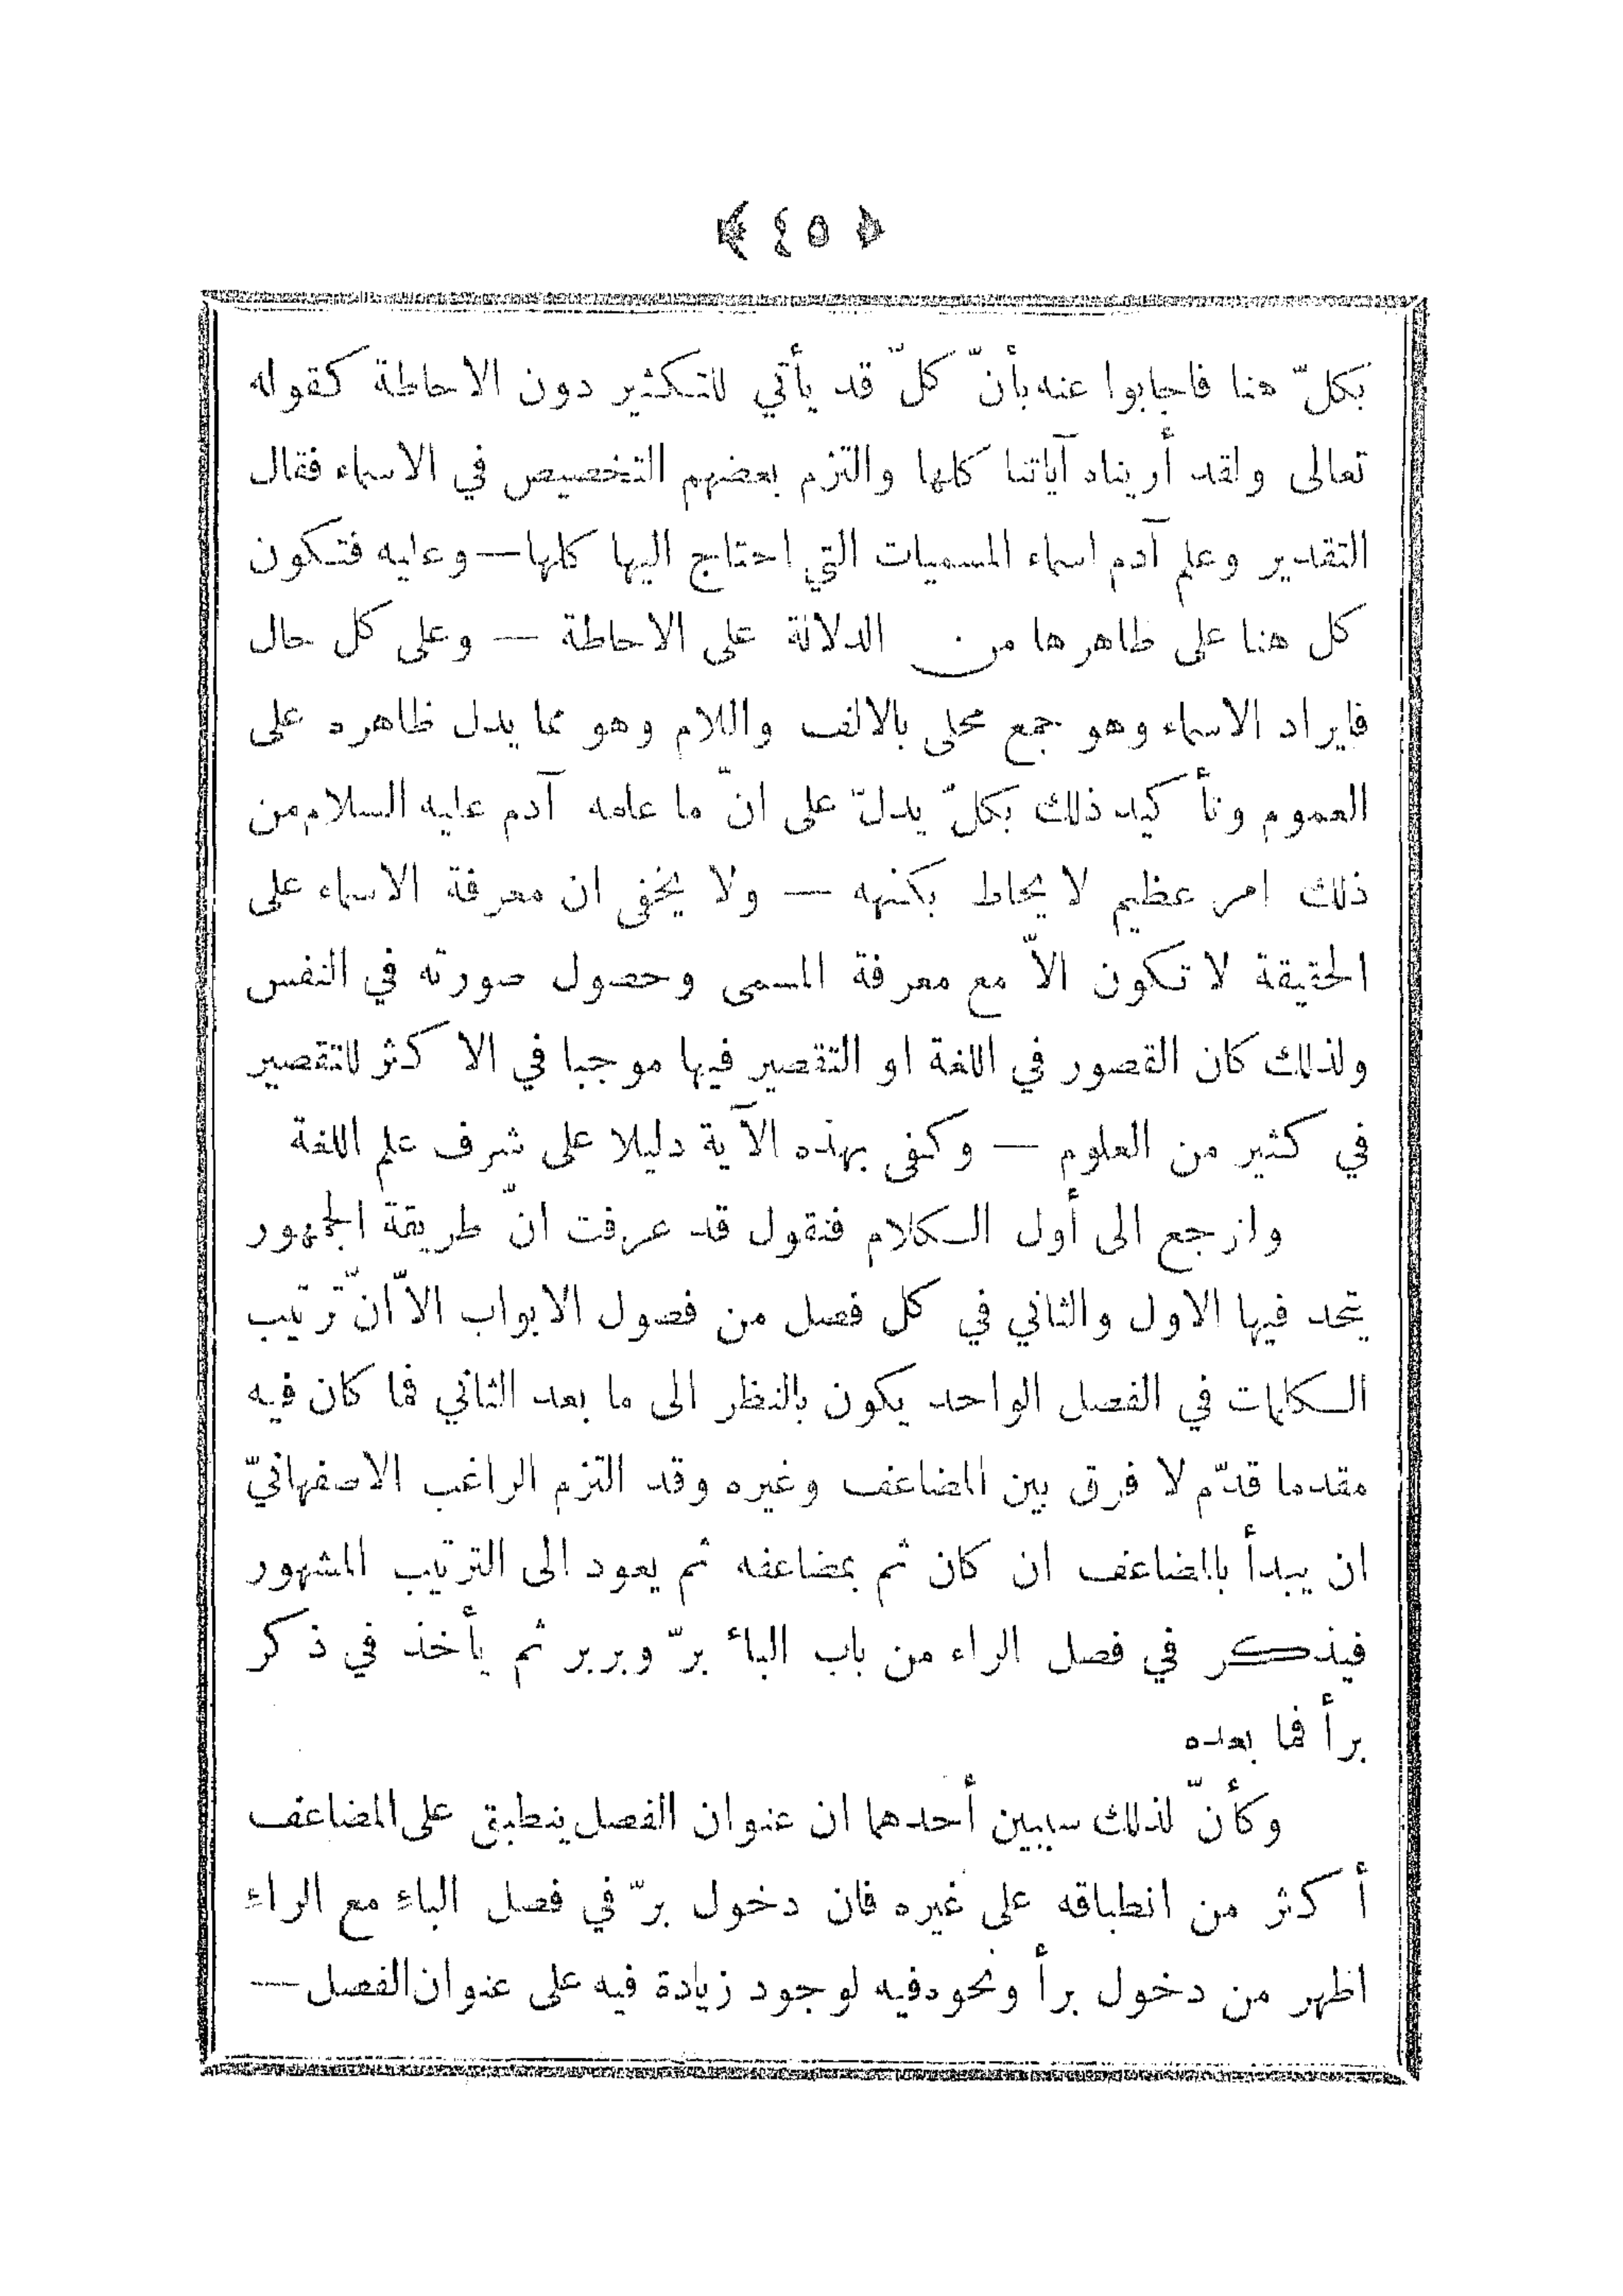 ﴿ ٤٥ ﴾
بكلّ هنا فاجابوا عنه بأنّ كلّ قد يأتي للتكثير دون الاحاطة كقوله
تعالى ولقد أريناه آياتنا كلها والتزم بعضهم التخصيص في الاسماء فقال
التقدير وعلم آدم اسماء المسميات التي احتاج اليها كلها — وعليه فتكون
كل هنا على ظاهرها من الدلالة على الاحاطة — وعلى كل حال
فايراد الاسماء وهو جمع محلى بالالف واللام وهو مما يدل ظاهره على
العموم وتأكيد ذلك بكلّ يدلّ على انّ ما علمه آدم عليه السلام من
ذلك امر عظيم لا يحاط بكنهه — ولا يخفى ان معرفة الاسماء على
الحقيقة لا تكون الاّ مع معرفة المسمى وحصول صورته في النفس
ولذلك كان القصور في اللغة او التقصير فيها موجبا في الاكثر للتقصير
في كثير من العلوم — وكفى بهذه الآية دليلا على شرف علم اللغة
وارجع الى أول الكلام فنقول قد عرفت انّ طريقة الجمهور
يتحد فيها الاول والثاني في كل فصل من فصول الابواب الاّ انّ ترتيب
الكلمات في الفصل الواحد يكون بالنظر الى ما بعد الثاني فما كان فيه
مقدما قدّم لا فرق بين المضاعف وغيره وقد التزم الراغب الاصفهانيّ
ان يبدأ بالمضاعف ان كان ثم بمضاعفه ثم يعود الى الترتيب المشهور
فيذكر في فصل الراء من باب الباء برّ وبربر ثم يأخذ في ذكر
برأ فما بعده
وكأنّ لذلك سببين أحدهما ان عنوان الفصل ينطبق على المضاعف
أكثر من انطباقه على غيره فان دخول برّ في فصل الباء مع الراء
اظهر من دخول برأ ونحوه فيه لوجود زيادة فيه على عنوان الفصل —